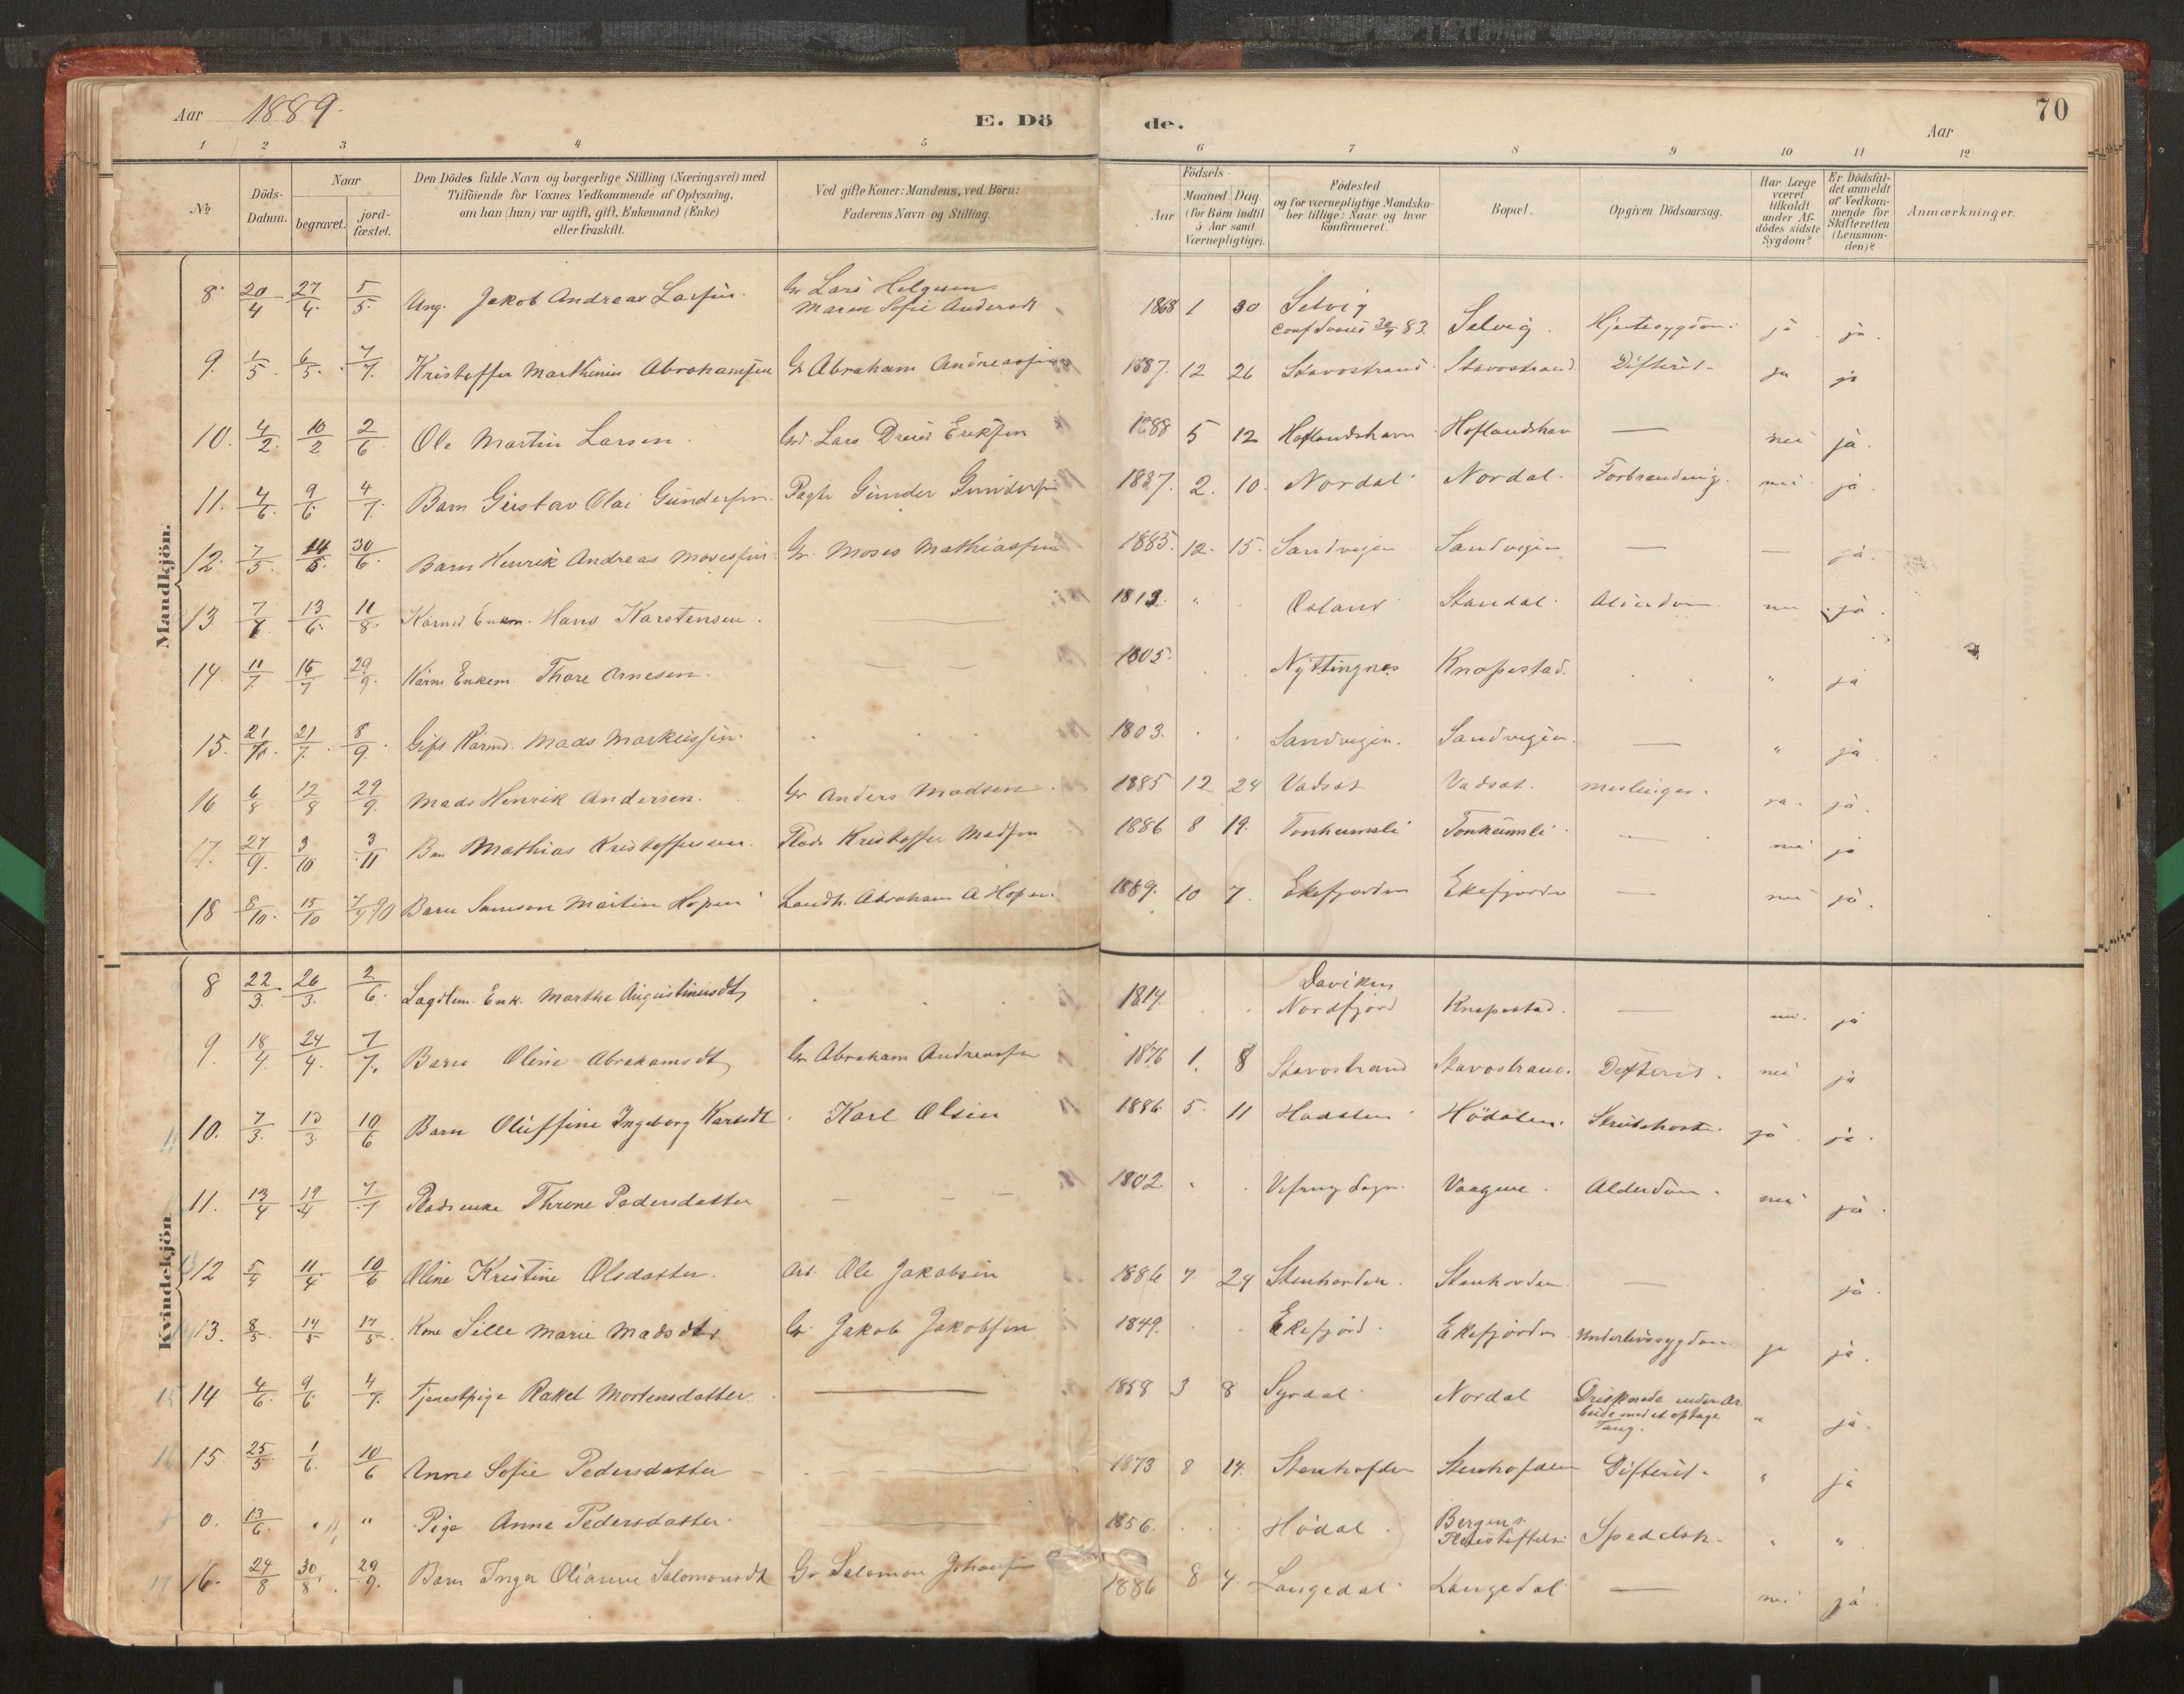 Aar 1889.
E. Dö
de.
Aar
70
1 2 3 4 5 6 7 8 9 10 11 12
№
Döds-
Datum.
Naar
begravet.
jord-
fæstet.
Den Dödes fulde Navn og borgerlige Stilling (Næringsvei) med
Tilföiende for Voxnes Vedkommende af Oplysning,
om han (hun) var ugift, gift, Enkemand (Enke)
eller fraskilt.
Ved gifte Koner: Mandens, ved Börn:
Faderens Navn og Stilling.
Födsels-
Aar
Maaned. Dag
(for Börn indtil
5 Aar samt
Værnepligtige).
Födested
og for værnepligtige Mandska-
ber tillige: Naar og hvor
konfirmeret.
Bopæl.
Opgiven Dödsaarsag.
Har Læge
været
tilkaldt
under Af-
dödes sidste
Sygdom?
Er Dödsfal-
det anmeldt
af Vedkom-
mende for
Skifteretten
(Lensman-
den)?
Anmærkninger.
Mandkjön.
8 20/4 27/4 5/5 Ung. Jakob Andreas Larsen Gr Lars Helgesen
Maren Sofie Andersdt 1868 1 30 Selvig
Conf 83. Selvig. Hjertesygdom ja ja.
9. 1/5 6/5 7/7 Kristoffer Marthinius Abrahamsen Gr Abraham Andreassen 1887. 12 26 Stavostrand Stavostrand Difterit ja ja
10. 4/2 10/2 2/6 Ole Martin Larsen Lars Ereksen 1888 5 12 Hoflandshavn Hoflandshav — nei ja.
11. 4/6 9/6 4/7 Barn Gustav Olai Gundersen Pagter Gunder Gundersen 1887. 2. 10. Nordal Nordal. Forbrænding. nei ja
12. 7/5 14/5 30/6 Barn Henrik Andreas Mosessen Gr. Moses Mathiassen 1885. 12. 15. Sandvigen Sandvigen — — ja.
13. 13/6 11/8 Kaarm Enkem. Hans Karstensen — 1813 " Osland Standal Alderdom nei ja.
14 11/7 29/9 Kaarm Enkem Thore Arnesen — — 1805. Nyttingnes Knapestad. " ja
15. 21/7 21/7 8/9 Gift Kaarm. Mads Markussen 1803. Sandvigen. Sandvigen. — " ja
16 6/8 12/8 29/9 Mads Henrik Andersen. Gr Anders Madsen 1885 12 24 Vadset Vadset. meslinger. ja. ja.
17. 27/9 3/10 3/11 Barn Mathias Kristoffersen. Plads Kristoffer Madsen 1886 8 19. Tonheimsli Tonheimsli — nei ja
18 8/10 15/10 7/4 90 Barn Samson Martin Hopen Landh. Abraham A Hopen. 1889. 10 7. Ekefjorden Ekefjorden — nei ja.
Kvindekjön
8 22/3. 26/3. 2/6. Lægdlem. Enk. Marthe Augustinusdt 1814. Daviken
Nordfjord Knapestad. — nei. ja
9. 18/4. 24/4. 7/7. Barn Oline Abrahamsdt Gr Abraham Andreassen 1876 1. 8 Stavostrand Stavostrand. Difterit. nei ja
10. 7/3. 13/3. 10/6 Barn Oluffine Ingeborg Karlsdt Karl Olsen 1886. 5. 11 Hødalen. Strubehoste. ja ja.
11. 13/4 19/4 7/7 Pladsenke Throne Pedersdatter — — — 1802. Vefring Sogn. Vaagene. Alderdom. nei ja.
12 5/4 11/4 10/6 Oline Kristine Olsdatter. Arb. Ole Jakobsen 1886 7. 29 Stenhovden. Stenhovden. — ja.
13. 8/5. 14/5 17/5. Kone Sille Marie Madsdtr Gr Jakob Jakobsen 1849. Ekefjord. Ekefjorden Underlivssygdom ja ja.
14 4/6. 9/6. 4/7. Tjenestpige Rakel Mortensdatter. — 1858 3 8 Syrdal Nordal Druknede under Ar
beide med at optage
Tang. " ja.
15. 25/5. 1/6. 10/6 Anne Sofie Pedersdatter — 1873 8 14. Stenhofden Stenhofden Difterit. " ja
0. 13/6. " " Pige Anne Pedersdatter. — 1856. Hødal. Bergens
Pleiestiftelse Spedalsk. " "
16. 24/8 30/8. 29/9. Barn Inger Olianne Salomonsdt Gr Salomon 1886 8 4. Langedal Langedal — nei ja